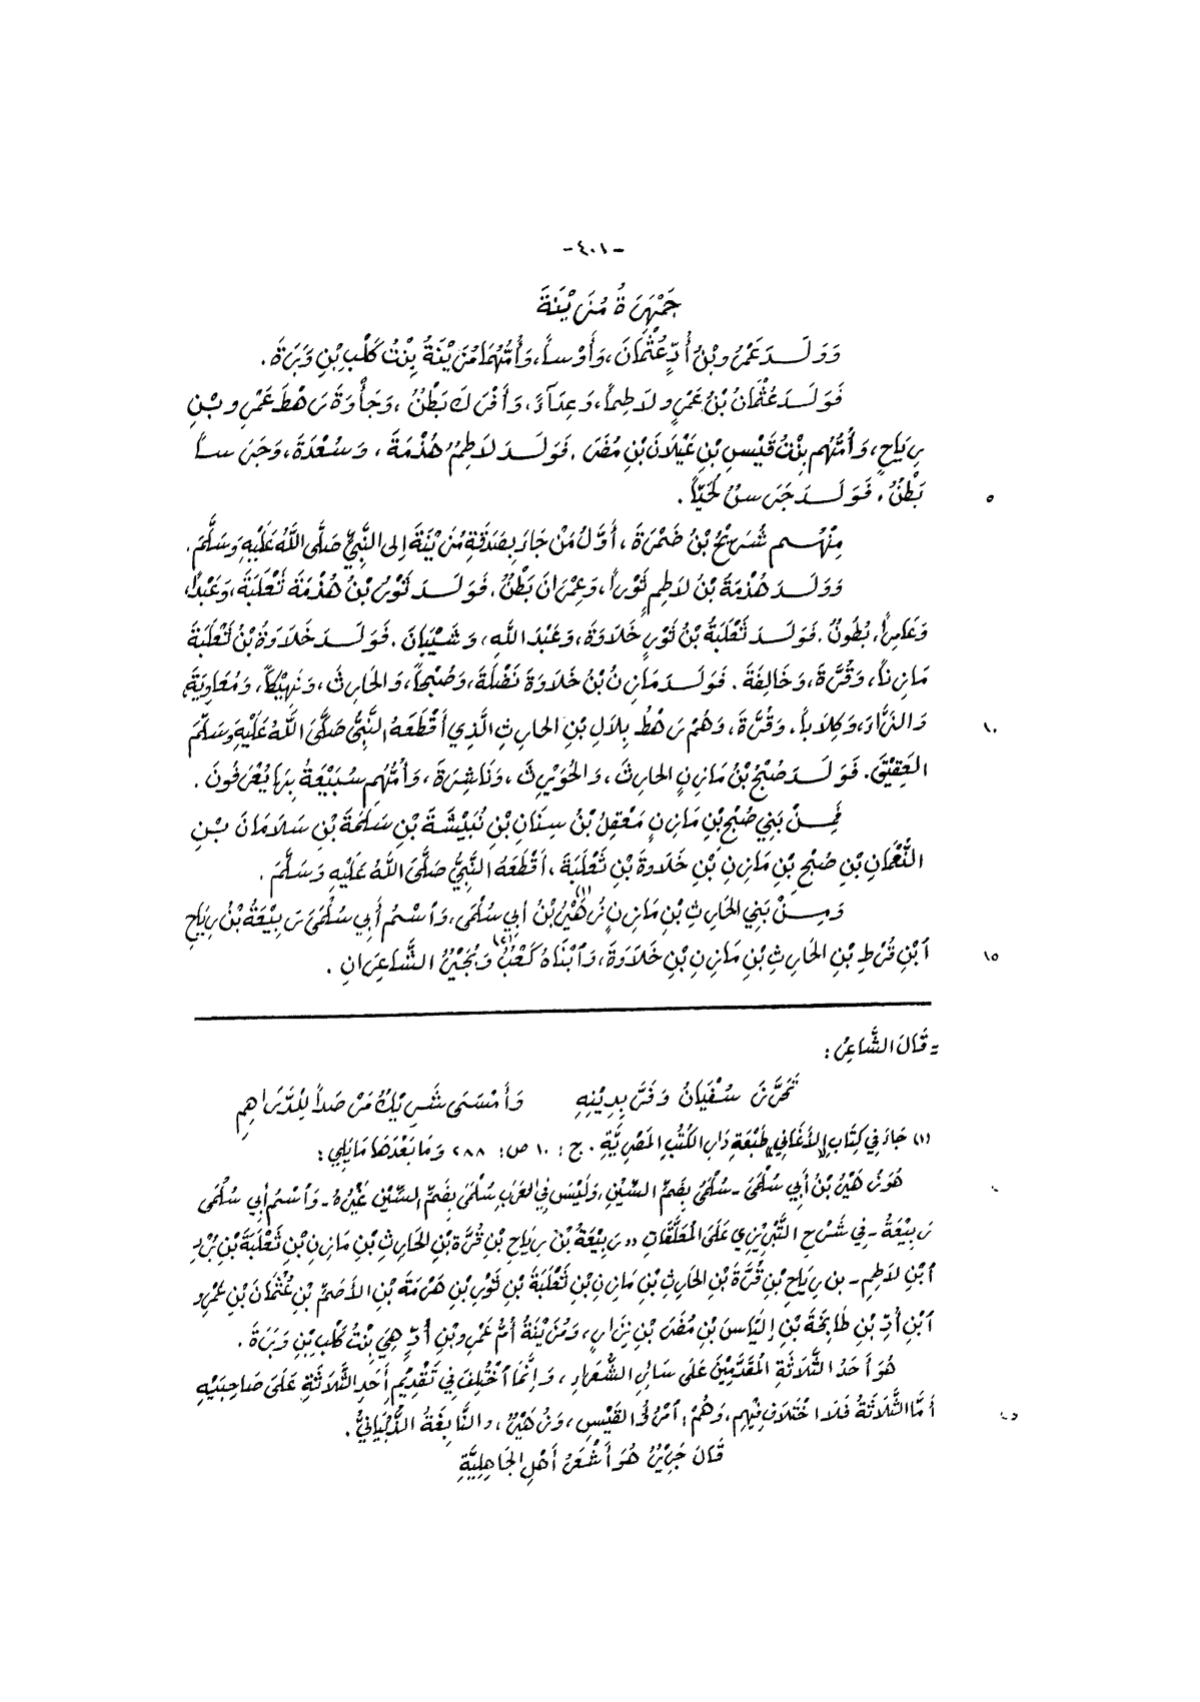 -٤٠١-
جَمْهَرَةُ مُزَيْنَةَ
وَوَلَــدَ عَمْرُو بْنُ أُدٍّ عُثْمَانَ، وَأَوْساً، وَأُمُّهُمَا مُزَيْنَةُ بِنْتُ كَلْبِ بْنِ وَبَرَةَ.
فَوَلَــدَ عُثْمَانُ بْنُ عَمْرٍو لاَطِماً، وَعِدَاءً، وَأَفْرَكَ بَطْنٌ، وَجَأْوَةَ رَهْطَ عَمْرِو بْنِ
رِيَاحٍ، وَأُمُّهُم بِنْتُ قَيْسِ بْنِ عَيْلاَنَ بْنِ مُضَرَ. فَوَلَــدَ لاَطِمُ هُذْمَةَ، وَسُعْدَةَ، وَجَرَســاً
بَطْنٌ، فَوَلَــدَ جَرَسٌ لُحَيّاً.
٥
مِنْهُــم شُرَيْحُ بْنُ ضَمْرَةَ، أَوَّلُ مَنْ جَاءَ بِصَدَقَةِ مُزَيْنَةَ إِلى النَّبِيِّ صَلَّى اللَّهُ عَلَيْهِ وَسَلَّمَ.
وَوَلَــدَ هُذْمَةُ بْنُ لاَطِمٍ ثَوْراً، وَعِمْرَانَ بَطْنٌ. فَوَلَــدَ ثَوْرُ بْنُ هُذْمَةَ ثَعْلَبَةَ، وَعَبْداً،
وَعَامِراً، بُطُونٌ. فَوَلَــدَ ثَعْلَبَةُ بْنُ ثَوْرٍ خَلاَوَةَ، وَعَبْدَ اللَّهِ، وَشَيْبَانَ. فَوَلَــدَ خَلاَوَةُ بْنُ ثَعْلَبَةَ
مَازِناً، وَقُرَّةَ، وَخَالِفَةَ. فَوَلَــدَ مَازِنُ بْنُ خَلاَوَةَ نَضْلَةَ، وَصُبْحاً، وَالحَارِثَ، وَنَهِيْكاً، وَمُعَاوِيَةَ،
وَالنَّزَّادَ، وَكِلاَباً، وَقُرَّةَ، وَهُمْ رَهْطُ بِلاَلِ بْنِ الحَارِثِ الَّذِي أَقْطَعَهُ النَّبِيُّ صَلَّى اللَّهُ عَلَيْهِ وَسَلَّمَ
١٠
العَقِيْقَ. فَوَلَــدَ صُبْحُ بْنُ مَازِنٍ الحَارِثَ، وَالحُوَيْرِثَ، وَنَاشِرَةَ، وَأُمُّهُم سُبَيْعَةُ بِهَا يُعْرَفُونَ.
فَمِــنْ بَنِي صُبْحِ بْنِ مَازِنٍ مَعْقِلُ بْنُ سِنَانِ بْنِ نُبَيْشَةَ بْنِ سَلَمَةَ بْنِ سَلاَمَانَ بْــنِ
النُّعْمَانِ بْنِ صُبْحِ بْنِ مَازِنِ بْنِ خَلاَوَةَ بْنِ ثَعْلَبَةَ، أَقْطَعَهُ النَّبِيُّ صَلَّى اللَّهُ عَلَيْهِ وَسَلَّمَ.
وَمِــنْ بَنِي الحَارِثِ بْنِ مَازِنٍ زُهَيْرُ (١) بْنُ أَبِي سُلْمَى، وَٱسْمُ أَبِي سُلْمَى رَبِيْعَةُ بْنُ رِيَاحِ
ٱبْنِ قُرْطِ بْنِ الحَارِثِ بْنِ مَازِنِ بْنِ خَلاَوَةَ، وَٱبْنَاهُ كَعْبٌ (٢) وَبُجَيْرٌ الشَّاعِرَانِ.
١٥
= قَالَ الشَّاعِرُ:
تَحَرَّزَ سُفْيَانُ وَفَرَّ بِدِيْنِهِ وَأَمْسَى شَرِيْكٌ مَرْصَداً لِلدَّرَاهِمِ
(١) جَاءَ فِي كِتَابِ الأَغَانِي طَبْعَةِ دَارِ الكُتُبِ المَصْرِيَّةِ. ج: ١٠ ص: ٢٨٨ وَمَا بَعْدَهَا مَا يَلِي:
هُوَ زُهَيْرُ بْنُ أَبِي سُلْمَى - سُلْمَى بِضَمِّ السِّيْنِ، وَلَيْسَ فِي العَرَبِ سُلْمَى بِضَمِّ السِّيْنِ غَيْرُهُ - وَٱسْمُ أَبِي سُلْمَى
رَبِيْعَةُ - فِي شَرْحِ التَّبْرِيْزِي عَلَى المُعَلَّقَاتِ ,, رَبِيْعَةُ بْنُ رِيَاحِ بْنِ قُرَّةَ بْنِ الحَارِثِ بْنِ مَازِنِ بْنِ ثَعْلَبَةَ بْنِ بُرْدِ
ٱبْنِ لاَطِمِ - بن رِيَاحِ بْنِ قُرَّةَ بْنِ الحَارِثِ بْنِ مَازِنِ بْنِ ثَعْلَبَةَ بْنِ ثَوْرِ بْنِ هَرْمَةَ بْنِ الأَصَمِّ بْنِ عُثْمَانَ بْنِ عَمْرِو
ٱبْنِ أُدِّ بْنِ طَابِخَةَ بْنِ إِلْيَاسَ بْنِ مُضَرَ بْنِ نِزَارٍ، وَمُزَيْنَةُ أُمُّ عَمْرِو بْنِ أُدٍّ هِيَ بِنْتُ كَلْبِ بْنِ وَبَرَةَ.
هُوَ أَحَدُ الثَّلاَثَةِ المُقَدَّمِيْنَ عَلَى سَائِرِ الشُّعَرَاءِ، وَإِنَّمَا ٱخْتُلِفَ فِي تَقْدِيْمِ أَحَدِ الثَّلاَثَةِ عَلَى صَاحِبَيْهِ
أَمَّا الثَّلاَثَةُ فَلاَ ٱخْتِلاَفَ فِيْهِمِ، وَهُمْ: ٱمْرُؤُ القَيْسِ، وَزُهَيْرٌ، وَالنَّابِغَةُ الذُّبْيَانِيُّ.
قَالَ جَرِيْرٌ هُوَ أَشْعَرُ أَهْلِ الجَاهِلِيَّةِ